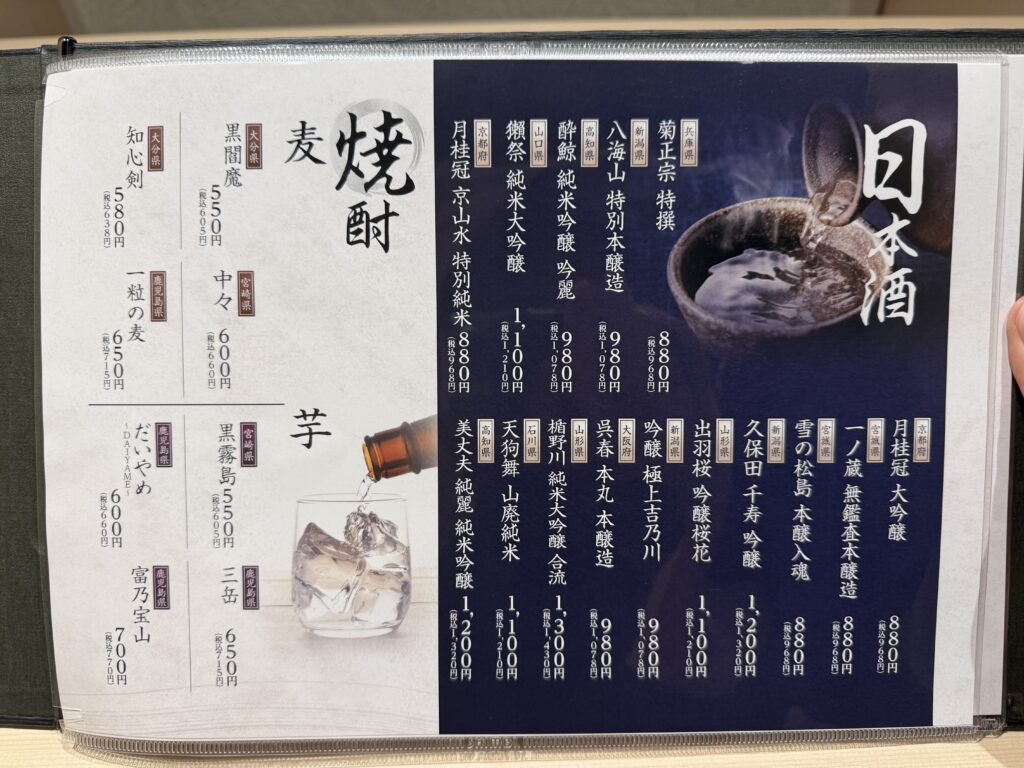 日本酒
兵庫県
菊正宗 特撰
880円
(税込968円)
新潟県
八海山 特別本醸造
980円
(税込1,078円)
高知県
酔鯨 純米吟醸 吟麗
980円
(税込1,078円)
山口県
獺祭 純米大吟醸
1,100円
(税込1,210円)
京都府
月桂冠 京山水 特別純米
880円
(税込968円)
京都府
月桂冠 大吟醸
880円
(税込968円)
宮城県
一ノ蔵 無鑑査本醸造
880円
(税込968円)
宮城県
雪の松島 本醸入魂
880円
(税込968円)
新潟県
久保田 千寿 吟醸
1,200円
(税込1,320円)
山形県
出羽桜 吟醸桜花
1,100円
(税込1,210円)
新潟県
吟醸 極上吉乃川
980円
(税込1,078円)
大阪府
呉春 本丸 本醸造
980円
(税込1,078円)
山形県
楯野川 純米大吟醸 合流
1,300円
(税込1,430円)
石川県
天狗舞 山廃純米
1,100円
(税込1,210円)
高知県
美丈夫 純麗 純米吟醸
1,200円
(税込1,320円)
焼酎
麦
大分県
黒閻魔
550円
(税込605円)
大分県
知心剣
580円
(税込638円)
宮崎県
中々
600円
(税込660円)
鹿児島県
一粒の麦
650円
(税込715円)
芋
宮崎県
黒霧島
550円
(税込605円)
鹿児島県
だいやめ
~DAIYAME~
600円
(税込660円)
鹿児島県
三岳
650円
(税込715円)
鹿児島県
富乃宝山
700円
(税込770円)